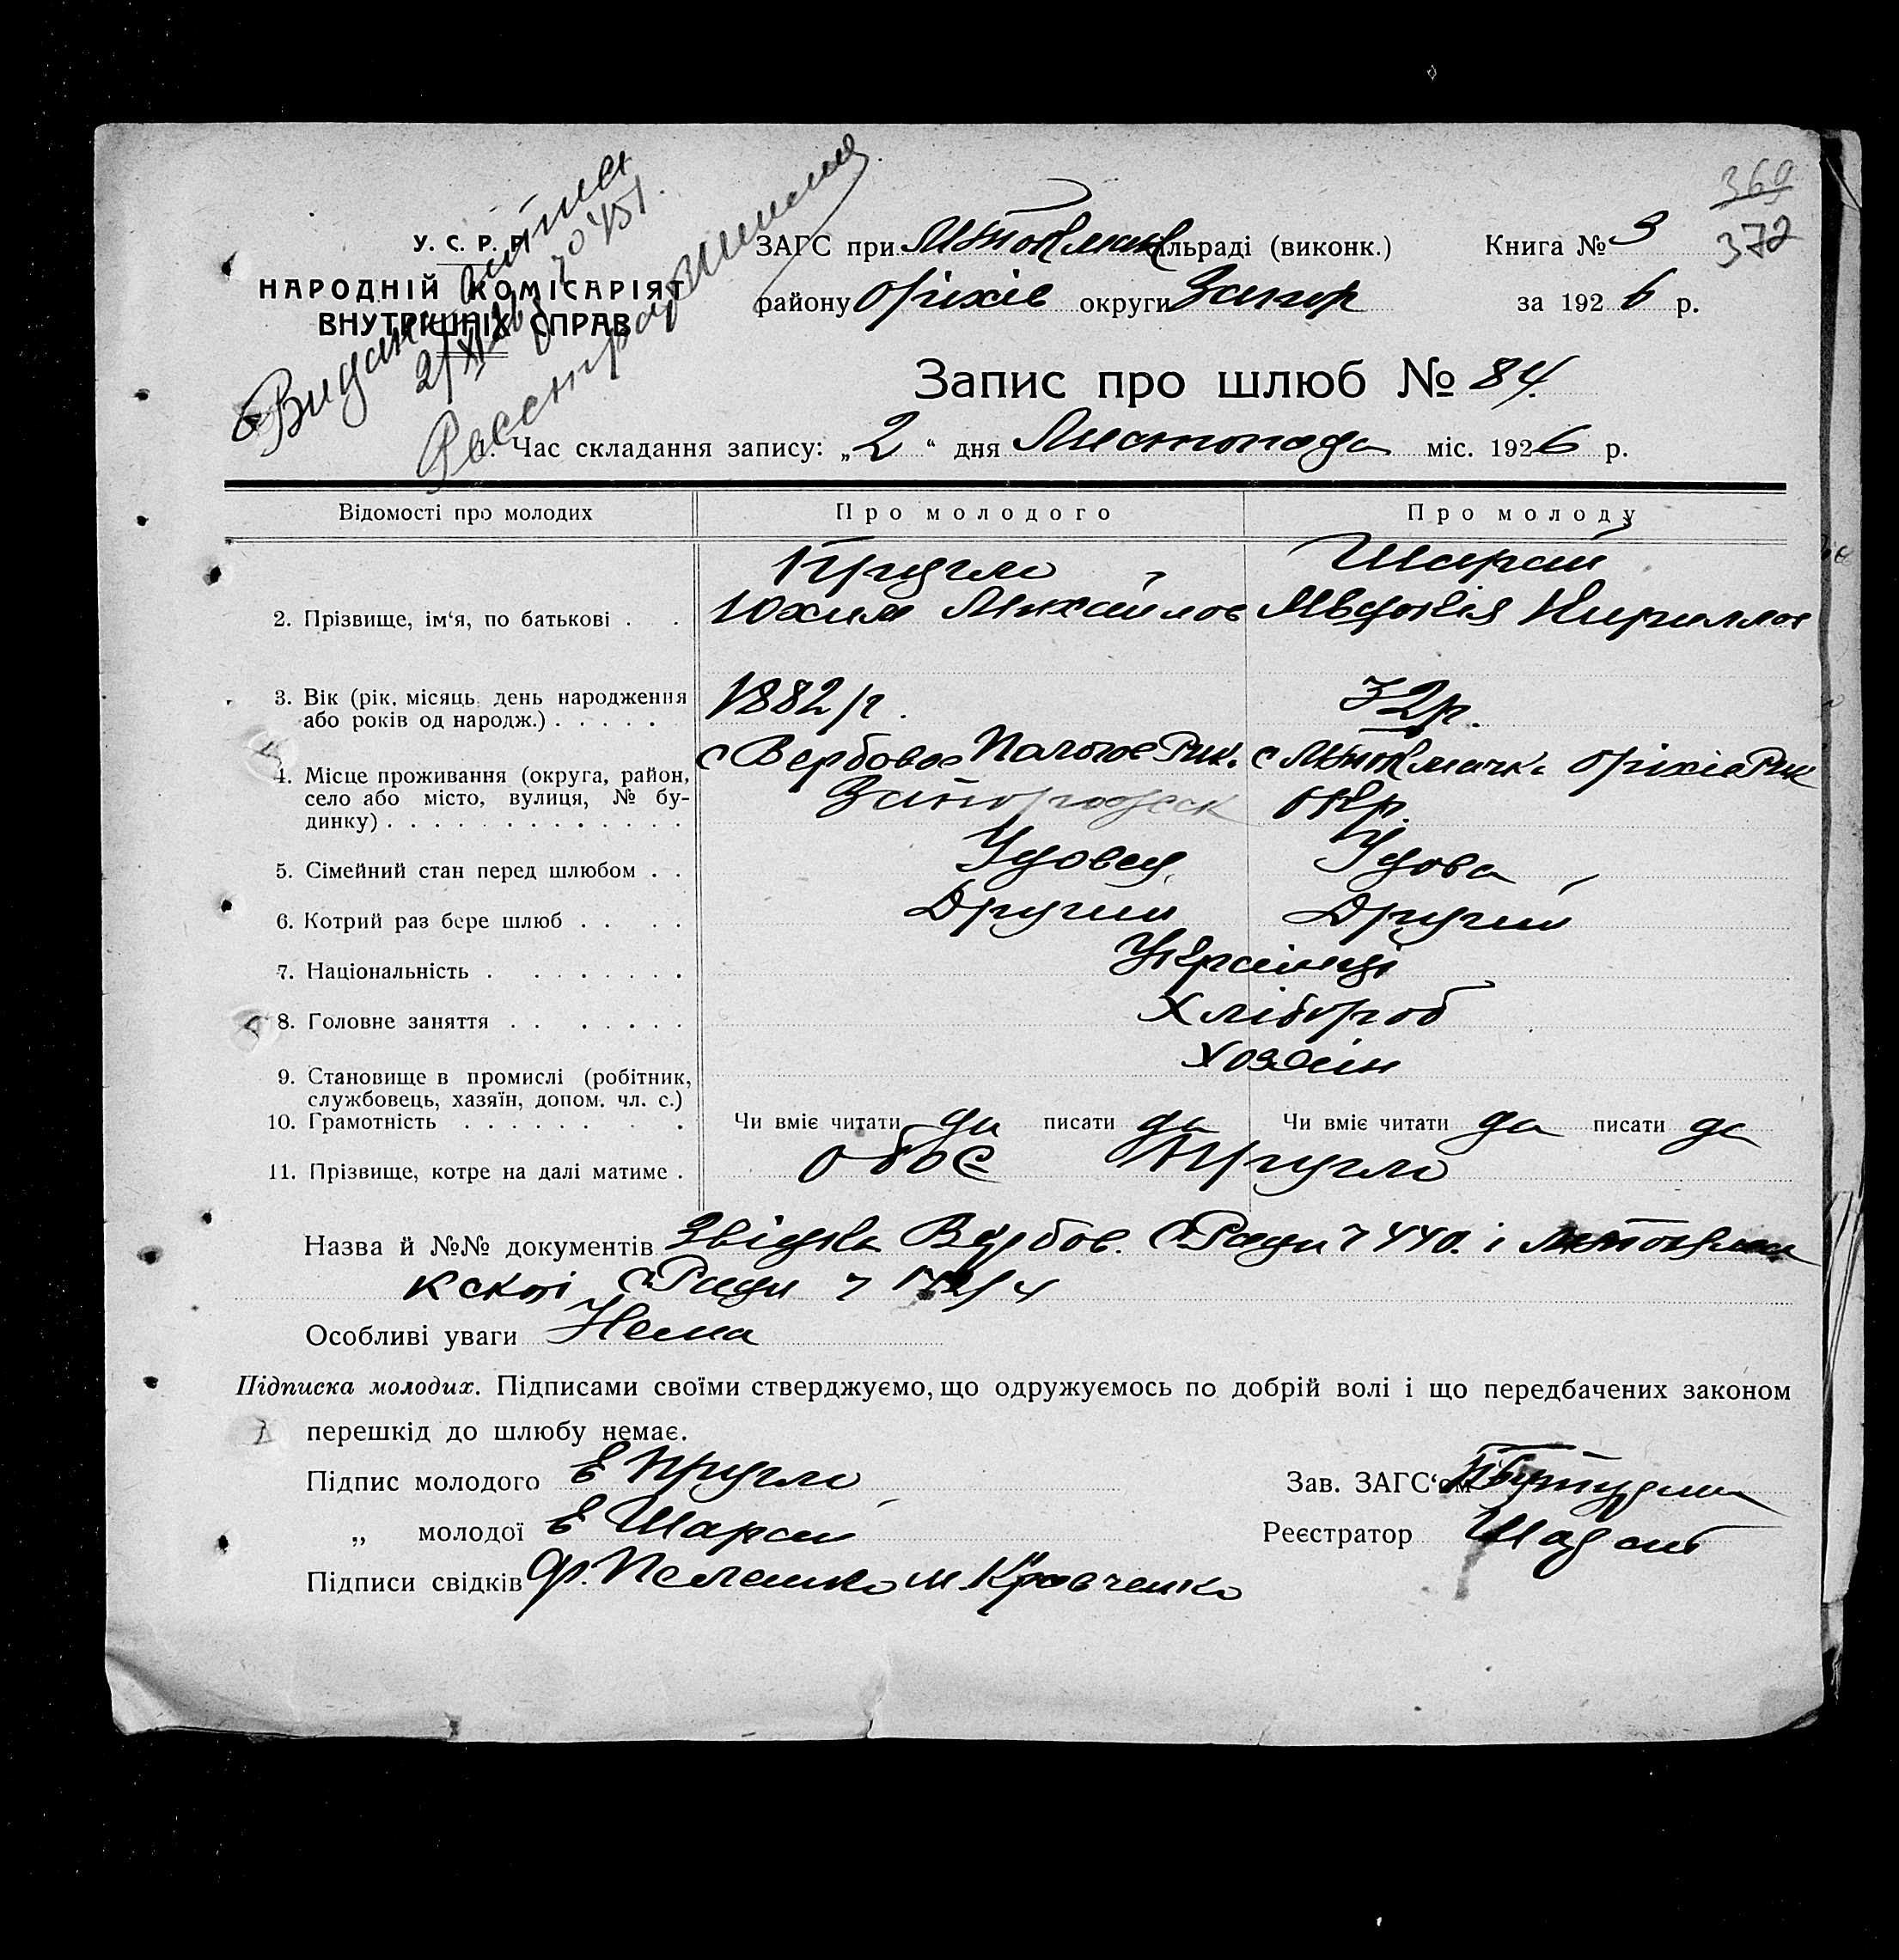 369
372
Видан витяг
2/XI 26 70451.
У. С. Р. Р.
НАРОДНІЙ КОМІСАРІЯТ
ВНУТРІШНІХ СПРАВ
ЗАГС при М Токмач льраді (виконк.) Книга № 3
району Оріхів округи Запор за 1926 р.
Запис про шлюб № 84.
Час складання запису: „2“ дня Листопада міс. 1926 р.
Відомості про молодих Про молодого Про молоду
Кругло Шарай
2. Прізвище, ім‘я, по батькові . . Юхим Михайлов Явдокія Кириллов
3. Вік (рік, місяць, день народження 1882 р. 32 р.
або років од народж.) . . . . .
с Вербовое Пологов Рик. с М Токмачк. Оріхів Рик
4. Місце проживання (округа, район, Запорожск окр.
село або місто, вулиця, № бу-
динку) . . . . . . . . . . . . .
5. Сімейний стан перед шлюбом . . Удовец Удова
6. Котрий раз бере шлюб . . . . Другий Другий
7. Національність . . . . . . . . Українці
8. Головне заняття . . . . . . . Хлібороб
Хозяїн
9. Становище в промислі (робітник,
службовець, хазяїн, допом. чл. с.)
10. Грамотність . . . . . . . . Чи вміє читати да писати да Чи вміє читати да писати да
11. Прізвище, котре на далі матиме . обоє Кругло
Назва й №№ документів Звідка Вербов. с Ради ч 440. і М Токмач
кскоі с Ради ч
Особливі уваги Нема
Підписка молодих. Підписами своїми стверджуємо, що одружуємось по добрій волі і що передбачених законом
перешкід до шлюбу немає.
Підпис молодого Е Кругло Зав. ЗАГС‘ом
„ молодої Е Шарай Реєстратор
Підписи свідків Ф. Пелешко М. Кравченко